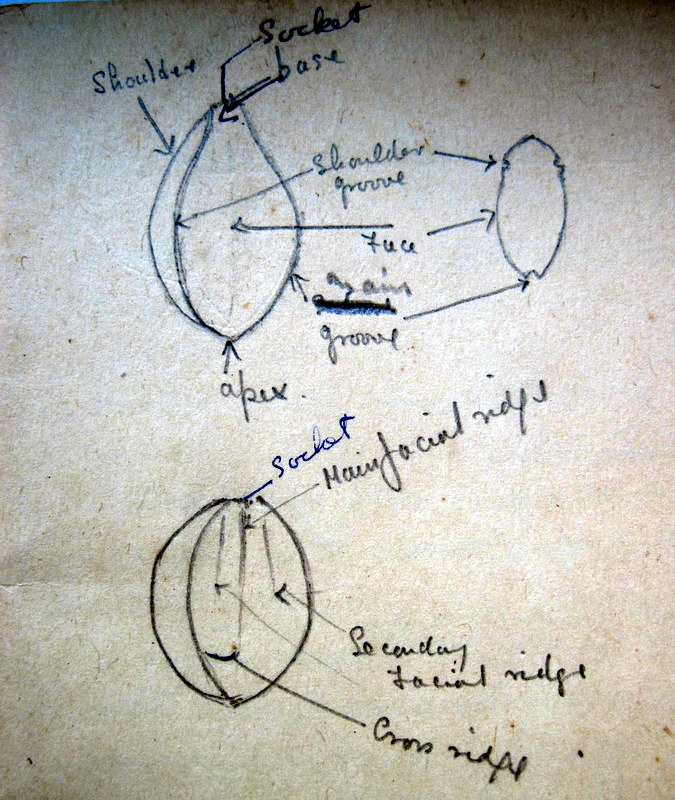 Socket
base
Shoulder
Shoulder
groove
Face
main
groove
apex.
Socket
Main facial ridge
Secondary
facial ridge
Cross ridge